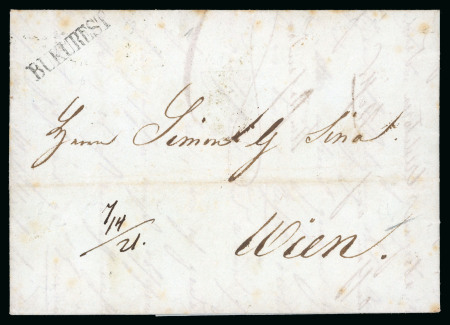 BUKUREST
Herrn Simon G Sina.
7/14
21.
Wien.